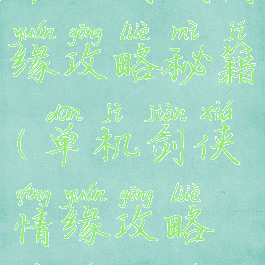 yuán gōng lüè mì jí
缘攻略秘籍
dān jī jiàn xiá
(单机剑侠
qíng yuán gōng lüè
情缘攻略